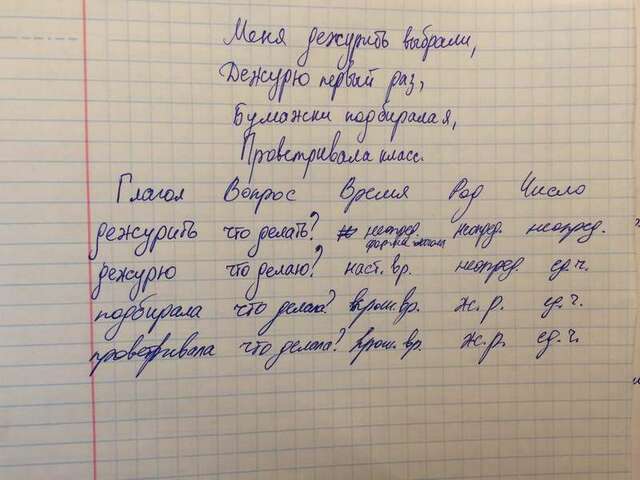 Меня дежурить выбрали,
Дежурю первый раз,
Бумажки подбирала я,
Проветривала класс.
Глагол Вопрос Время Род Число
дежурить что делать? неопред. форма глагола неопред. неопред.
дежурю что делаю? наст. вр. неопред. ед. ч.
подбирала что делала? прош. вр. ж. р. ед. ч.
проветривала что делала? прош. вр. ж. р. ед. ч.